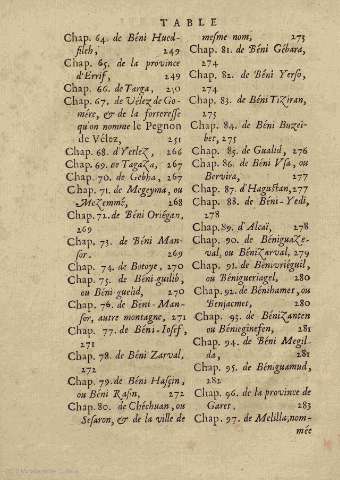 TABLE
Chap. 64. de Béni Hued-
fileh, 249
Chap. 65. de la province
d'Errif, 249
Chap. 66. de Targa, 250
Chap. 67. de Vélez de Go-
mére, & de la forteresse
qu'on nomme le Pegnon
de Vélez, 251
Chap. 68. d'Yerlez, 266
Chap. 69. de Tagaza, 267
Chap. 70. de Gebha, 267
Chap. 71. de Megeyma, ou
Mezemmé, 268
Chap. 72. de Béni Oriégan,
269
Chap. 73. de Béni Man-
sor. 269
Chap. 74. de Botoye, 270
Chap. 75. de Béni-guilib,
ou Béni-guelid, 270
Chap. 76. de Béni-Man-
sor, autre montagne, 271
Chap. 77. de Béni-Iosef,
271
Chap. 78. de Béni Zarval,
272
Chap. 79. de Béni Hascin,
ou Béni Rasin, 272
Chap. 80. de Chéchuan, ou
Sesaron, & de la ville de
mesme nom, 273
Chap. 81. de Béni Gébara,
274
Chap. 82. de Béni Yerso,
274
Chap. 83. de Béni Tiziran,
275
Chap. 84. de Béni Buzei-
ber, 275
Chap. 85. de Gualid, 276
Chap. 86. de Béni Usa, ou
Bervira, 277
Chap. 87. d'Hagustan, 277
Chap. 88. de Béni-Yedi,
278
Chap. 89. d'Alcaï, 278
Chap. 90. de Béniguaze-
val, ou Bénizarval, 279
Chap. 91. de Bénivriéguil,
ou Bénigueriagel, 280
Chap. 92. de Bénihamet, ou
Benjacmet, 280
Chap. 93. de Bénizanten
ou Bénieginefen, 281
Chap. 94. de Béni Megil-
da, 281
Chap. 95. de Béniguamud,
282
Chap. 96. de la province de
Garet, 283
Chap. 97. de Melilla, nom-
mée